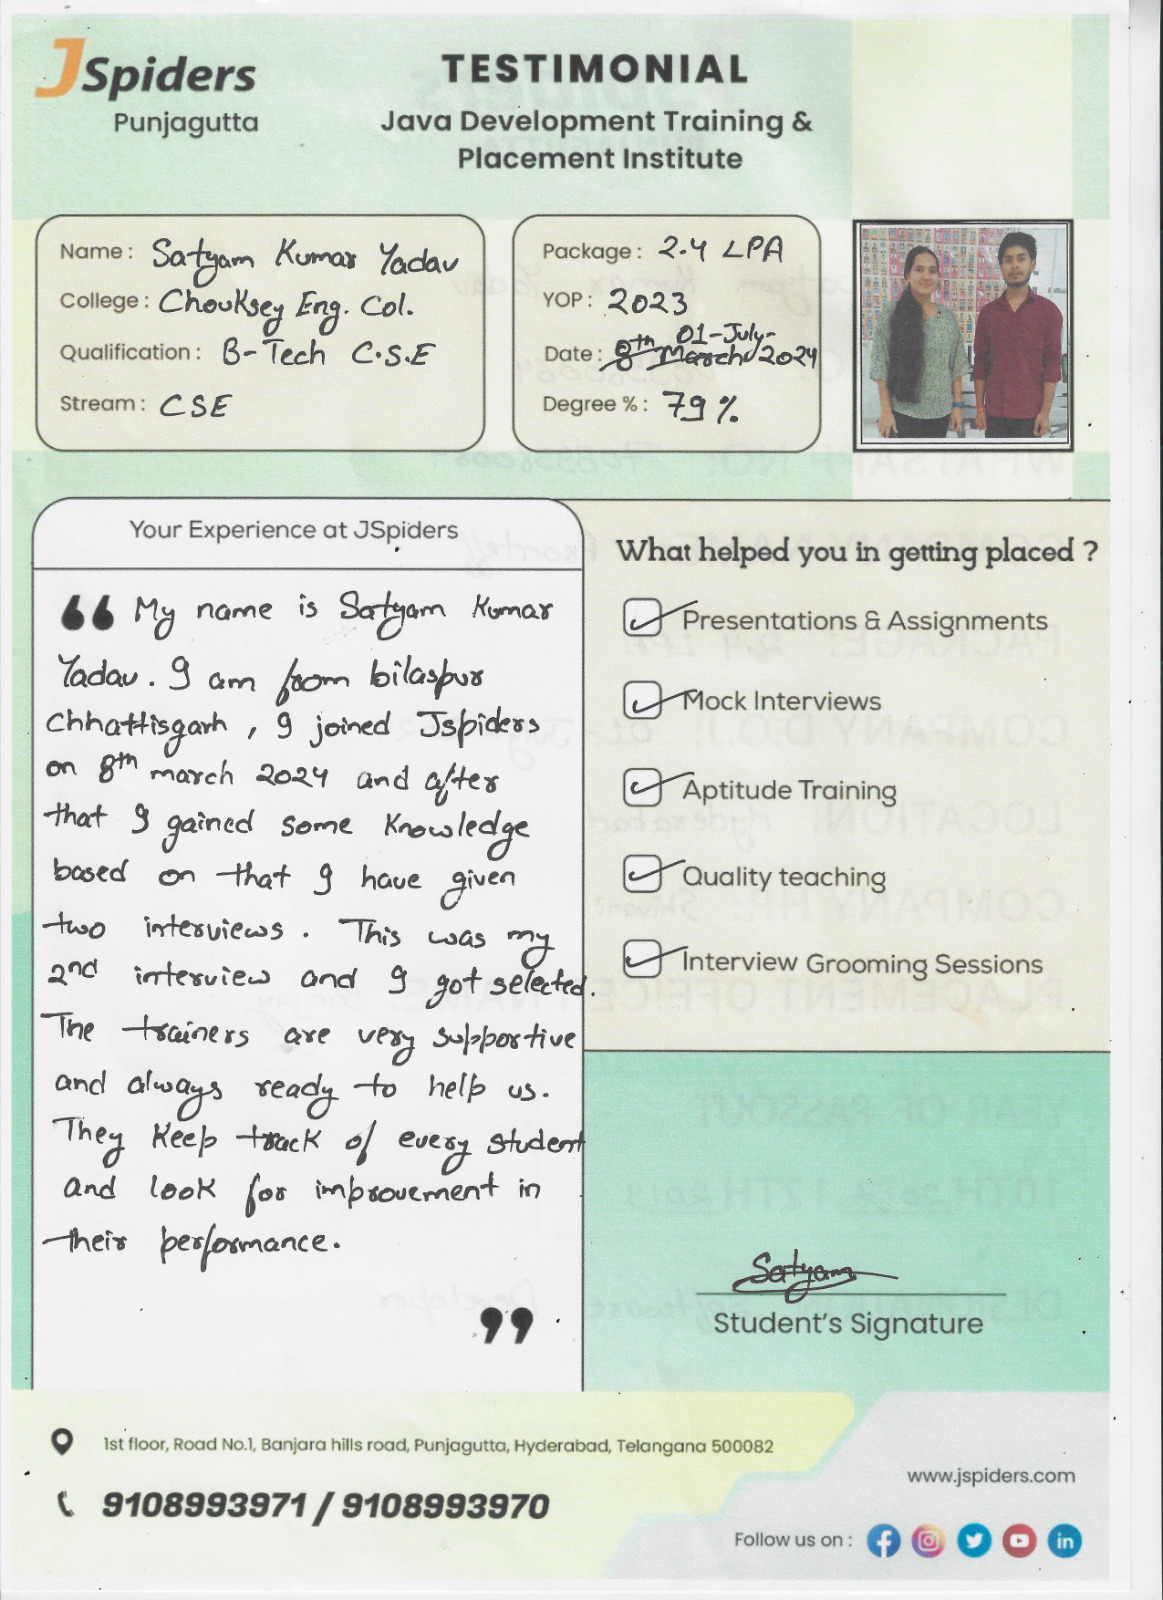 JSpiders
Punjagutta
TESTIMONIAL
Java Development Training &
Placement Institute
Name : Satyam Kumar Yadav
College : Chouksey Eng. Col.
Qualification : B-Tech C.S.E
Stream : CSE
Package : 2.4 LPA
YOP : 2023
01-July-
Date : 8th March 2024
Degree % : 79 %
Your Experience at JSpiders
“ My name is Satyam Kumar
Yadav. I am from bilaspur
Chhattisgarh, I joined Jspiders
on 8th march 2024 and after
that I gained some Knowledge
based on that I have given
two interviews. This was my
2nd interview and I got selected.
The trainers are very supportive
and always ready to help us.
They Keep track of every student
and look for improvement in
their performance.
”
What helped you in getting placed ?
Presentations & Assignments
Mock Interviews
Aptitude Training
Quality teaching
Interview Grooming Sessions
Satyam
Student's Signature
1st floor, Road No.1, Banjara hills road, Punjagutta, Hyderabad, Telangana 500082
9108993971 / 9108993970
www.jspiders.com
Follow us on :